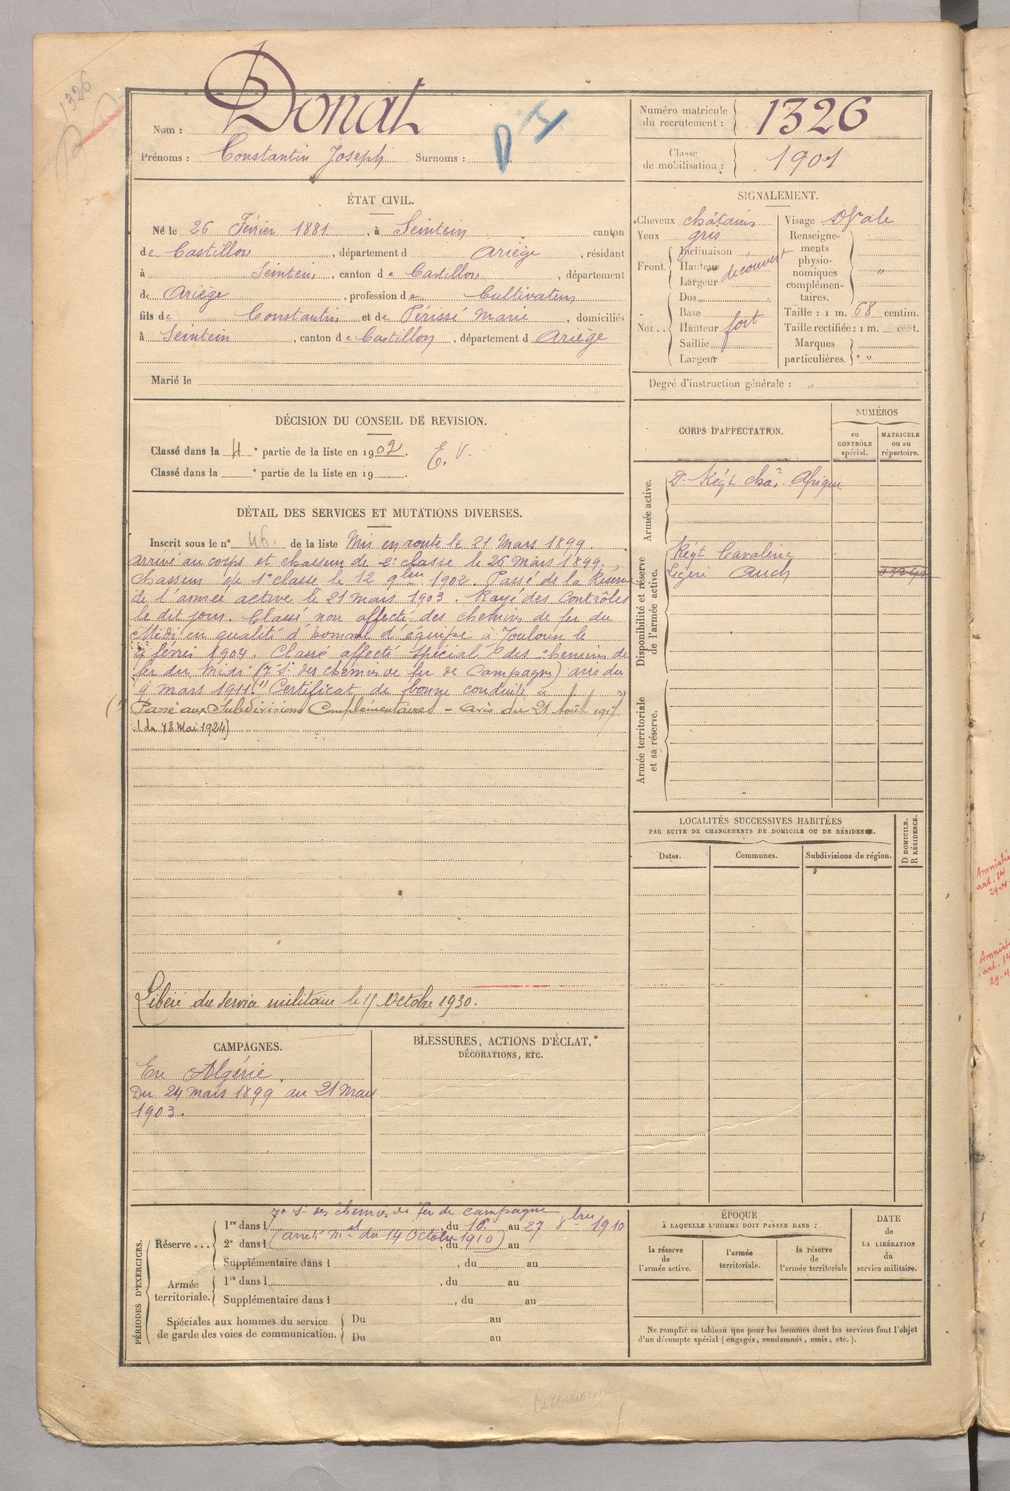 1326
Donat
Nom :
Prénoms : Constantin Joseph Surnoms :
Numéro matricule du recrutement : 1326
Classe de mobilisation : 1901
ÉTAT CIVIL.
Né le 26 Février 1881, à Seintein canton
de Castillon, département d Ariège, résidant
à Seintein, canton de Castillon, département
de Ariège, profession de Cultivateur
fils de Constantin et de Périssé Marie, domiciliés
à Seintein, canton de Castillon, département d Ariège
Marié le
SIGNALEMENT.
Cheveux châtains
Yeux gris
Front. Inclinaison
Hauteur découvert
Largeur
Nez. Dos
Base
Hauteur fort
Saillie
Largeur
Visage Ovale
Renseignements physionomiques complémentaires. "
Taille : 1 m. 68 centim.
Taille rectifiée : 1 m. cent.
Marques particulières. "
Degré d'instruction générale : "
DÉCISION DU CONSEIL DE REVISION.
Classé dans la 4e partie de la liste en 1902. E. V.
Classé dans la e partie de la liste en 19
CORPS D'AFFECTATION.
NUMÉROS
AU CONTRÔLE spécial.
MATRICULE ou au répertoire.
Armée active.
Régt Afrique
Disponibilité et réserve de l'armée active.
Régt Cavalerie
Légère Auch
Armée territoriale et sa réserve.
DÉTAIL DES SERVICES ET MUTATIONS DIVERSES.
Inscrit sous le n° 46. de la liste Mis en route le 21 Mars 1899
arrivé au corps et chasseur de 2e classe le 26 mars 1899,
chasseur de 1e classe le 12 9bre 1902. Passé ds la Réserve
de l'armée active le 21 mars 1903. Rayé des Contrôles
le dit jour. Classé non affecté des chemins de fer du
Midi en qualité d'homme d'équipe à Toulouse le
février 1904. Classé affecté spécial des chemins de
fer du Midi (7e Son des chemins de fer de Campagne) avis du
9 mars 1911. Certificat de bonne conduite
Passé aux Subdivisions Complémentaires - avis du 21 août 1917
(du 13 Mai 1924)
Libéré du service militaire le 15 Octobre 1930.
LOCALITÉS SUCCESSIVES HABITÉES
PAR SUITE DE CHANGEMENTS DE DOMICILE OU DE RÉSIDENCE.
Dates.
Communes.
Subdivisions de région.
D DOMICILE. R RÉSIDENCE.
CAMPAGNES.
En Algérie.
Du 24 mars 1899 au 21 Mars
1903.
BLESSURES, ACTIONS D'ÉCLAT,
DÉCORATIONS, ETC.
PÉRIODES D'EXERCICES.
7e Son des chemins de fer de campagne
Réserve... 1re dans l du 18 au 27 8bre 1910
2e dans l (arrêté Mel du 14 Octobre 1910), du au
Supplémentaire dans l, du au
Armée territoriale. 1re dans l, du au
Supplémentaire dans l, du au
Spéciales aux hommes du service de garde des voies de communication. Du au
Du au
ÉPOQUE
À LAQUELLE L'HOMME DOIT PASSER DANS :
la réserve de l'armée active.
l'armée territoriale.
la réserve de l'armée territoriale
DATE de LA LIBÉRATION du service militaire.
Ne remplir ce tableau que pour les hommes dont les services font l'objet
d'un décompte spécial (engagés, condamnés, omis, etc.).